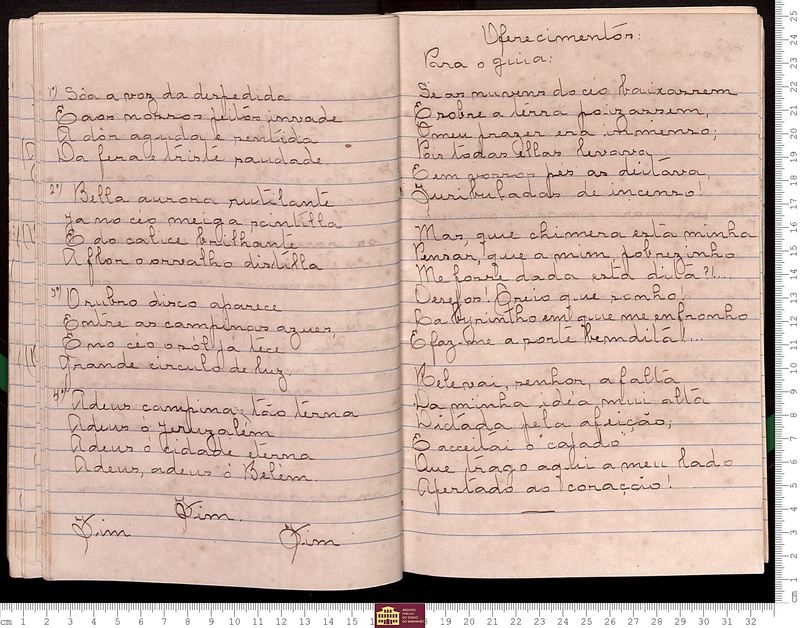 1º) Sôa a voz da despedida
E aos nossos peitos invade
A dôr aguda e sentida
Da fera e triste saudade.
2º) Bella aurora rutilante
Ja no céo meiga scintilla
E do calice brilhante
A flor o orvalho distilla
3º) O rubro disco aparece
Entre as campinas azues,
E no céo o sól ja tece
Grande circulo de luz.
4º) Adeus campina; tão terna
Adeus ó Jeruzalém
Adeus ó cidade eterna
Adeus, adeus ó Belém.
Fim.
Fim
Fim
Oferecimentos:
Para o guia:
Se as nuvens do céo baixassem
E sobre a terra poizassem,
O meu prazer era immenso;
Pois todas ellas levava
E em vossos pés as deitava,
Turibuladas de incenso!
Mas, que chimera esta minha
Pensar, que a mim, pobrezinho
Me fosse dada esta dita?!...
Desejos! Creio que sonho!
Labyrintho em que me enfronho
E faz-me a porte bemdita!...
Relevai, senhor, a falta
Da minha idéa mui alta
Dictada pela afeição;
E acceitai o "cajado",
Que trago aqui a meu lado
Afertado ao coração!
ARQUIVO
PÚBLICO
DO ESTADO
DO MARANHÃO